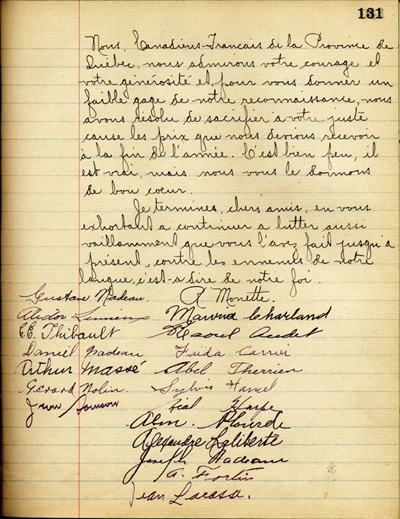 131
Nous, Canadiens-Français de la Province de
Québec, nous admirons votre courage et
votre générosité et, pour vous donner un
faible gage de notre reconnaissance, nous
avons résolu de sacrifier à votre juste
cause les prix que nous devions recevoir
à la fin de l'année. C'est bien peu, il
est vrai, mais nous vous le donnons
de bon coeur.
Je termines, chers amis, en vous
exhortant a continuer a lutter aussi
vaillamment que vous l'avez fait jusqu'à
présent, contre les ennemis de notre
langue, c'est-à-dire de notre foi.
Gustave Nadeau. A. Monette.
Maurice Charland
E.E. Thibault Raoul Audet
Daniel Nadeau Faida Carrier
Arthur Massé Abel Therrien
Gérard Nolin Sylvio Hamel
Alm. Plourde
Alexandre Laliberté
Joseph Nadeau
A. Fortin
Jean Lacasse.